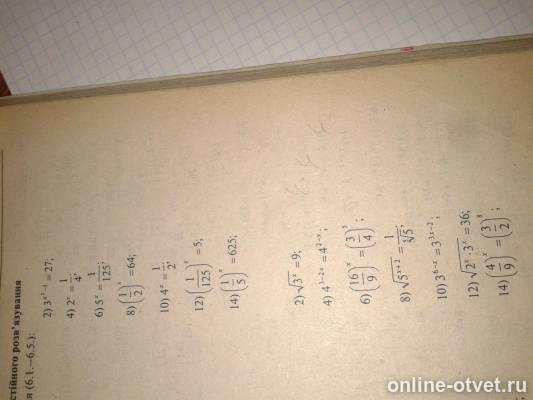 стійного розв'язування
ня (6.1.–6.5.):
2) 3^{x²-1} = 27;
4) 2^x = 1/4;
6) 5^x = 1/125;
8) (1/2)^x = 64;
10) 4^x = 1/2;
12) (1/125)^x = 5;
14) (1/5)^x = 625;
2) √(3^x) = 9;
4) 4^{1-2x} = 4^{2-x};
6) (16/9)^x = (3/4)^5;
8) √(5^{x+2}) = 1/∛5;
10) 3^{6-x} = 3^{3x-2};
12) √(2^x · 3^x) = 36;
14) (4/9)^x = (3/2)^8;
online-otvet.ru